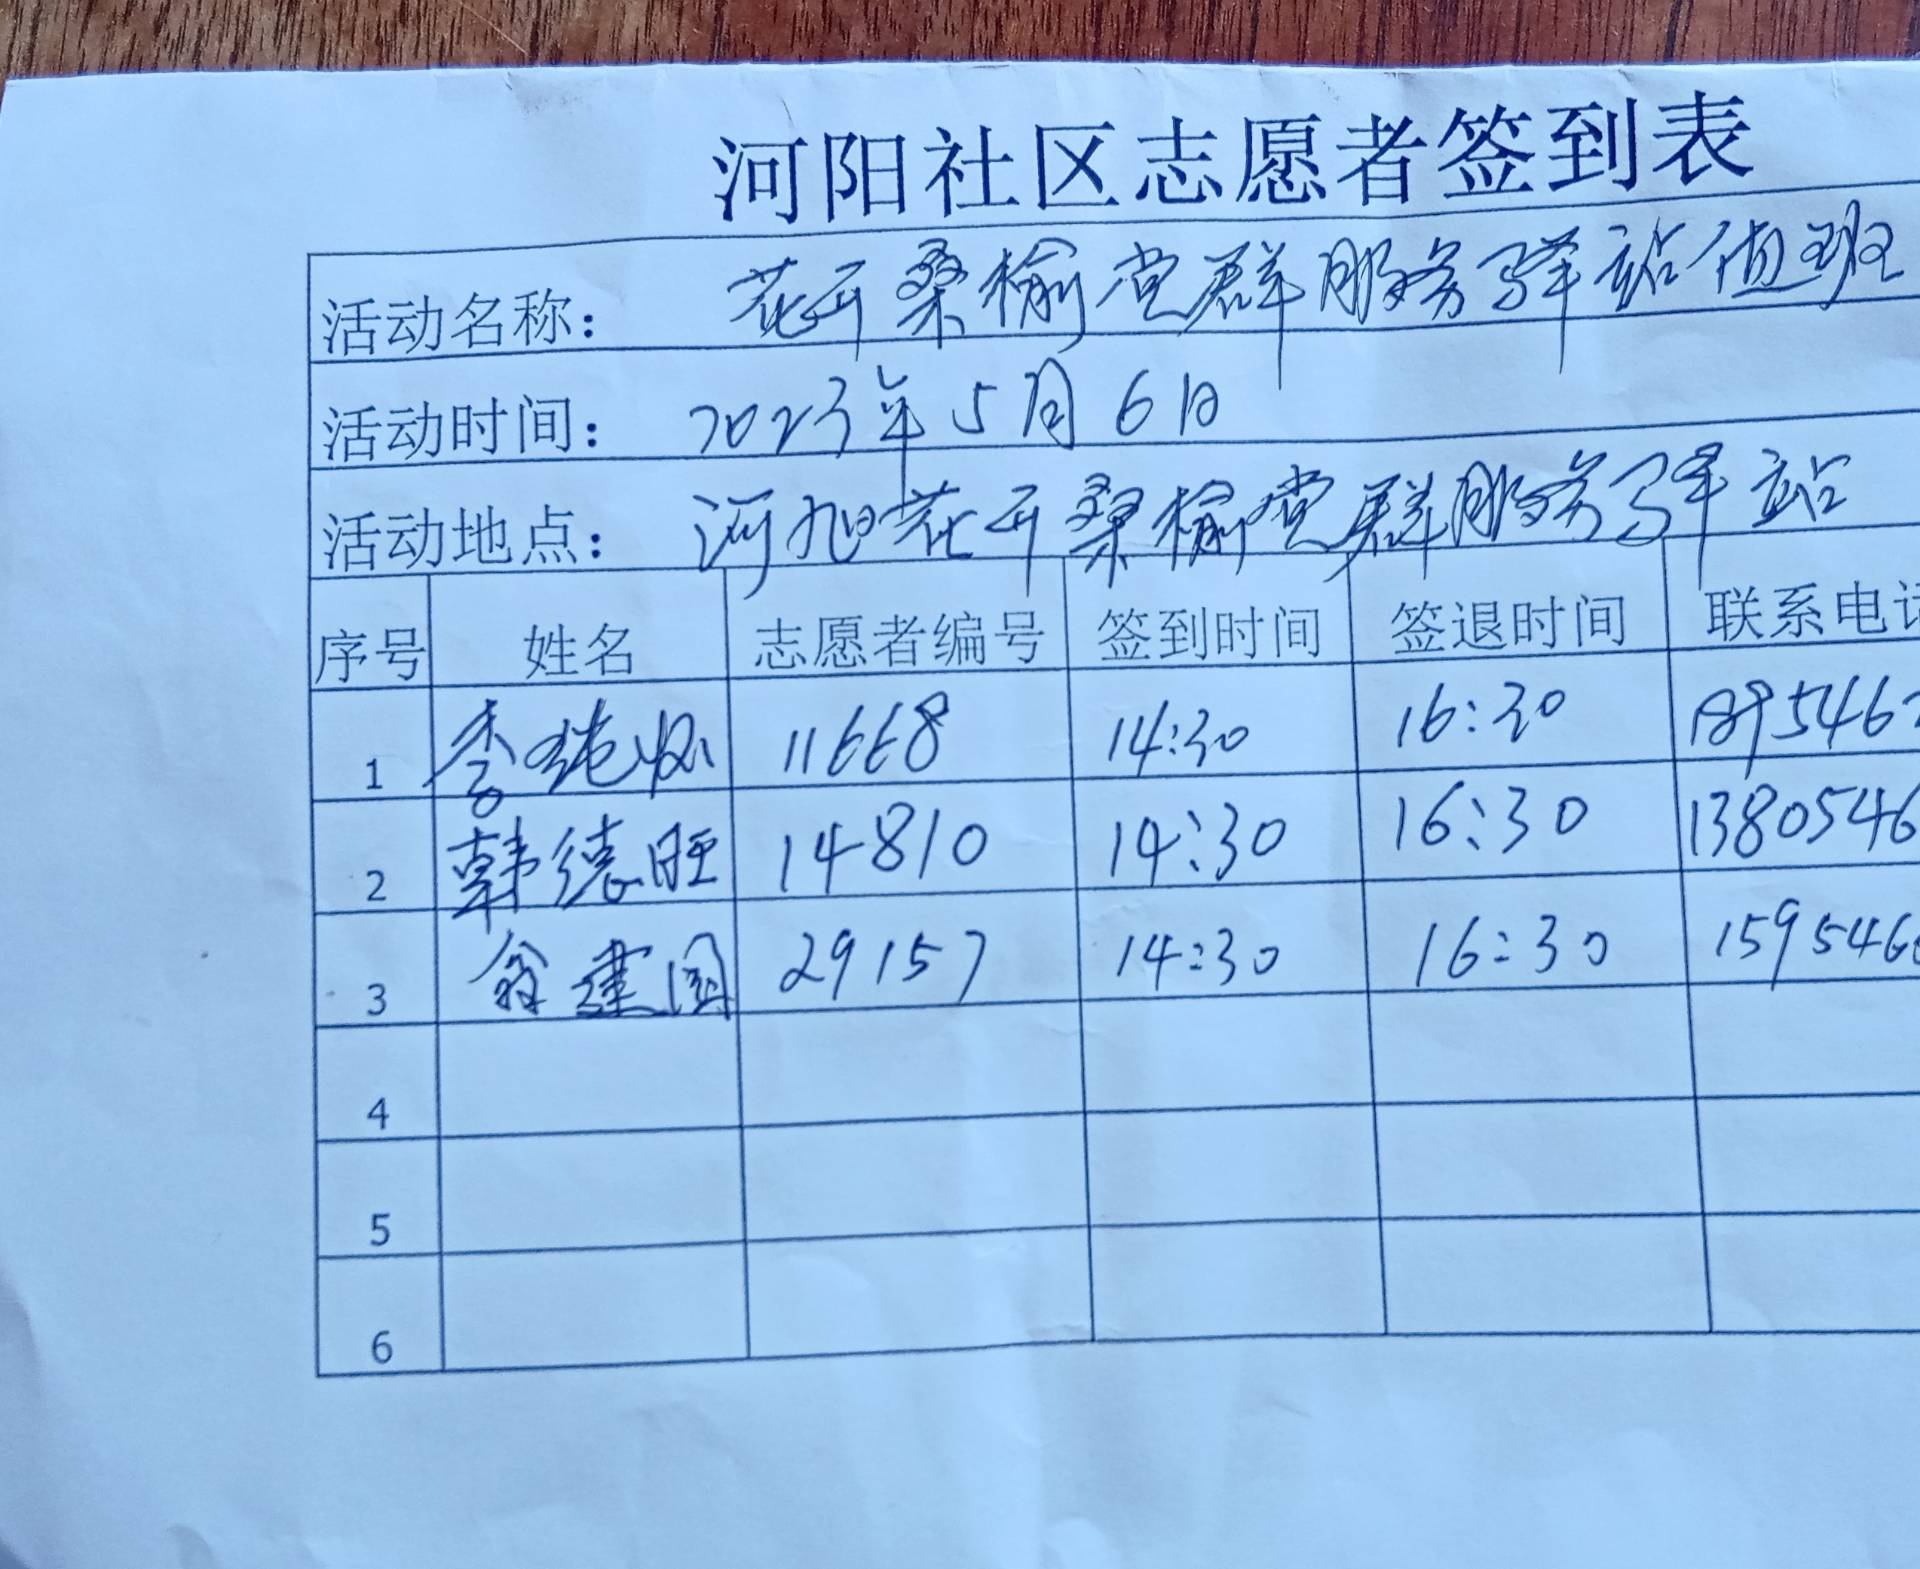 河阳社区志愿者签到表
活动名称： 花开桑榆党群服务驿站值班
活动时间： 2023年5月6日
活动地点： 河旭花开桑榆党群服务驿站
序号 姓名 志愿者编号 签到时间 签退时间 联系电话
1 李 11668 14:30 16:30 1895462
2 韩德旺 14810 14:30 16:30 1380546
3 翁建国 29157 14:30 16:30 1595466
4
5
6